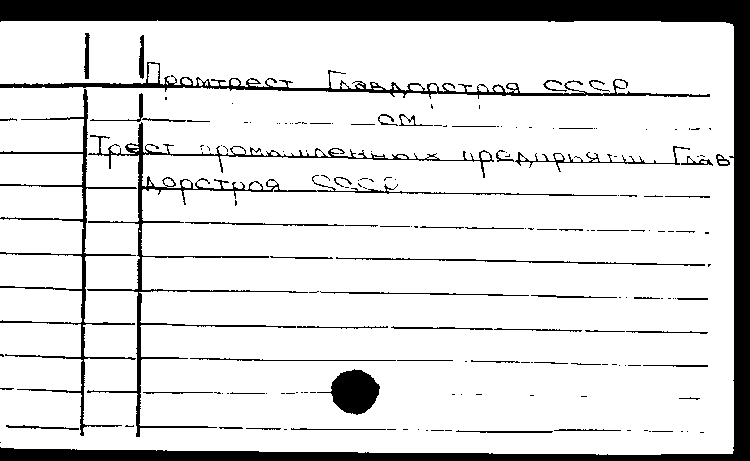 Промтрест Главдорстроя СССР
см.
Трест промышленных предприятий Глав-
дорстроя СССР